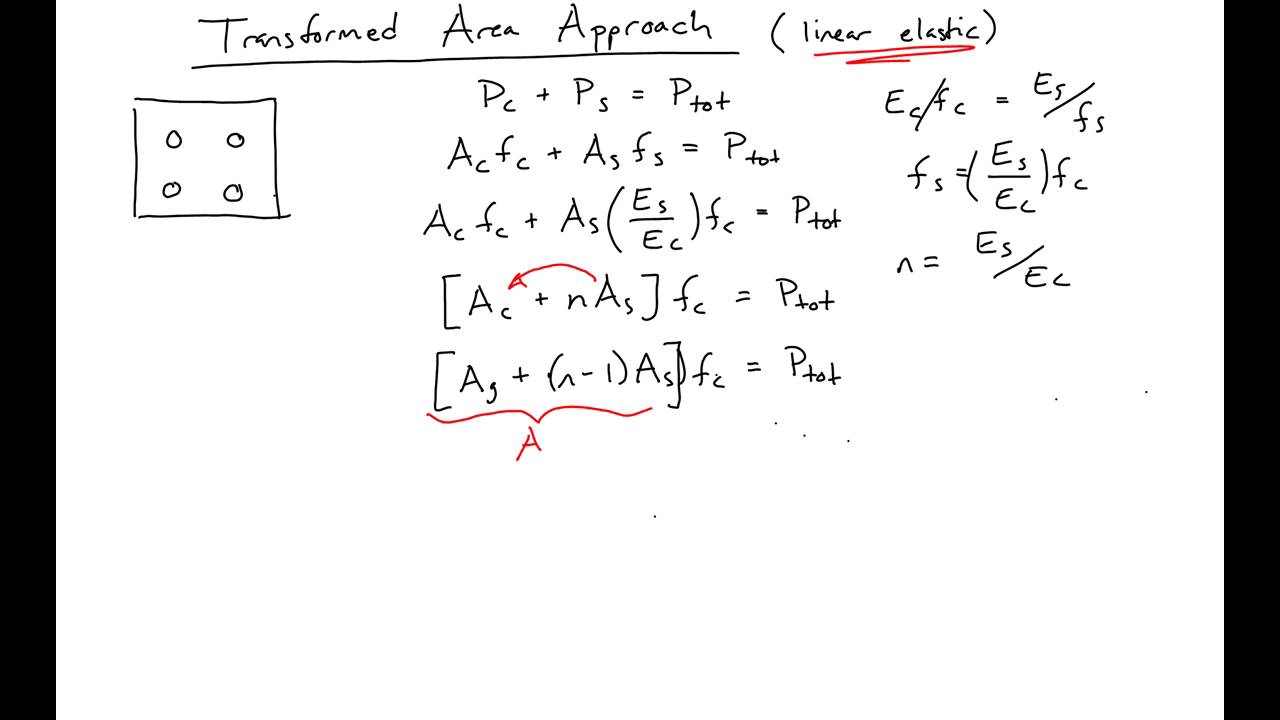 Transformed Area Approach (linear elastic)
Pc + Ps = Ptot
Ac fc + As fs = Ptot
Ac fc + As (Es/Ec) fc = Ptot
[Ac + nAs] fc = Ptot
[Ag + (n-1)As]) fc = Ptot
A
Ec/fc = Es/fs
fs = (Es/Ec) fc
n = Es/Ec